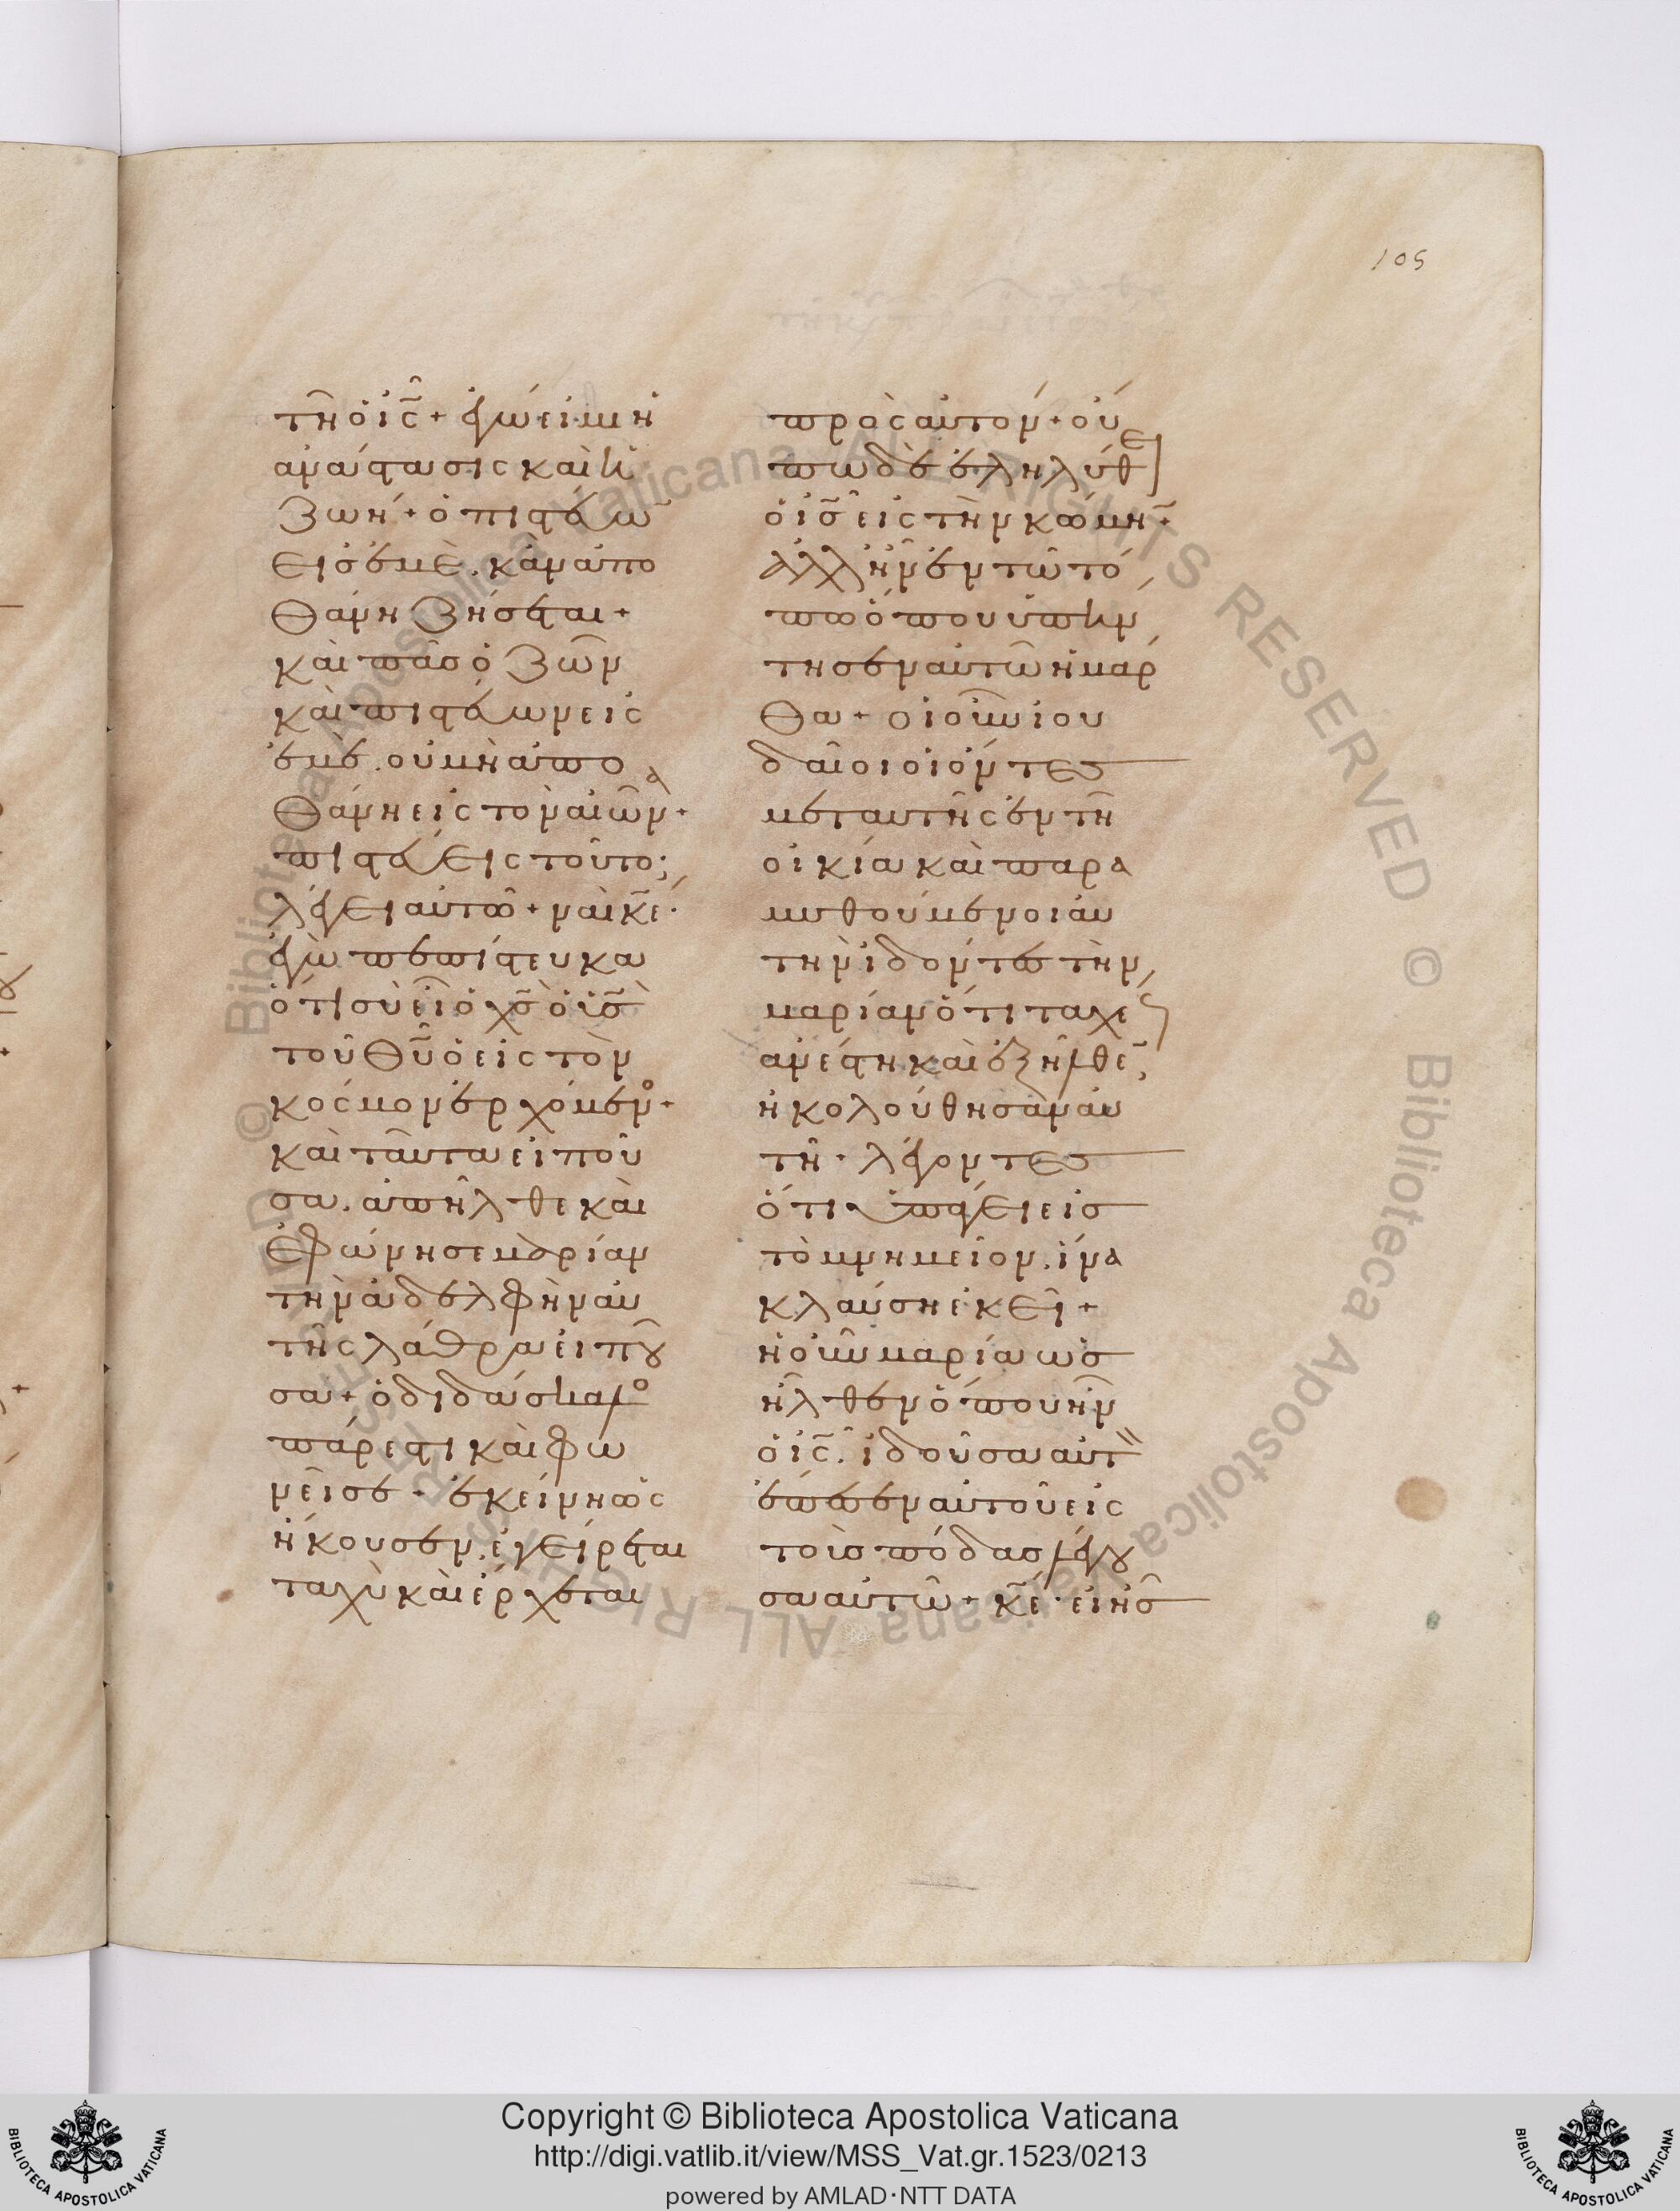 105
τῆ ὁ ις̅ + ἐγώ εἰμι ἡ
ἀνάστασις καὶ ἡ
ζωή + ὁ πιστεύω̅
εἰς ἐμὲ. κἂν ἀπο
θάνη ζήσεται +
καὶ πᾶσ ὁ ζῶν
καὶ πιστεύων εἰς
ἐμέ. οὐ μὴ ἀπο
θάνη εἰς τὸν αἰῶνα +
πιστεύεις τοῦτο;
λέγει αὐτῶ + ναὶ κε̅·
ἐγὼ πεπίστευκα
ὅτι σὺ εἶ ὁ χσ̅ ὁ υἱσ̅
τοῦ θυ̅ ὁ εἰς τὸν
κόσμον ἐρχόμενο +
καὶ ταῦτα εἰποῦ
σα. ἀπῆλθε καὶ
ἐφώνησε μαρίαν
τὴν ἀδελφὴν αὐ
τῆς λάθρα εἰποῦ
σα + ὁ διδάσκαλο
πάρεστι καὶ φω
νεῖ σε + ἐκείνη ὡς
ἤκουσεν. ἐγείρεται
ταχὺ καὶ ἔρχεται
πρὸς αὐτόν + οὔ
πω δὲ ἐληλύθει
ὁ ισ̅ εἰς τὴν κώμη̅ +
ἀλλ' ἦν ἐν τῶ τό
πω ὅπου ὑπήν
τησεν αὐτῶ ἡ μάρ
θα + οἱ οὖν ἰου
δαῖοι οἱ ὄντες
μετ' αὐτῆς ἐν τῆ
οἰκία καὶ παρα
μυθούμενοι αὐ
τὴν ἰδόντες τὴν
μαρίαν ὅτι ταχέως
ἀνέστη καὶ ἐξῆλθε̅,
ἠκολούθησαν αὐ
τῆ. λέγοντες
ὅτι ὑπάγει εἰσ
τὸ μνημεῖον. ἵνα
κλαύση ἐκεῖ +
ἡ οὖν μαρία ὡσ
ἦλθεν ὅπου ἦν
ὁ ις̅. ἰδοῦσα αὐτὸν
ἔπεσεν αὐτοῦ εἰς
τοὺσ πόδας λέγου
σα αὐτῶ + κε̅· εἰ ἦσ
Copyright © Biblioteca Apostolica Vaticana
http://digi.vatlib.it/view/MSS_Vat.gr.1523/0213
powered by AMLAD·NTT DATA
BIBLIOTECA APOSTOLICA VATICANA
BIBLIOTECA APOSTOLICA VATICANA
© Biblioteca Apostolica Vaticana ALL RIGHTS RESERVED © Biblioteca Apostolica Vaticana ALL RIGHTS RESERVED